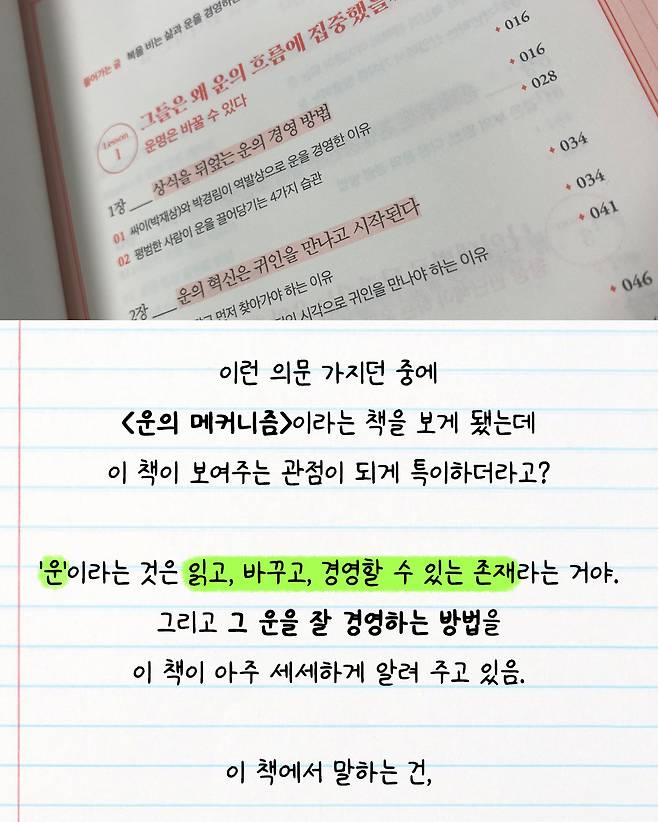 들어가는 글 복을 비는 삶과 운을 경영하는
Lesson 1
그들은 왜 운의 흐름에 집중했을
016
운명은 바꿀 수 있다
016
1장 상식을 뒤엎는 운의 경영 방법
028
01 싸이(박재상)와 박경림이 역발상으로 운을 경영한 이유
034
02 평범한 사람이 운을 끌어당기는 4가지 습관
034
2장 운의 혁신은 귀인을 만나고 시작된다
041
먼저 찾아가야 하는 이유
046
시각으로 귀인을 만나야 하는 이유
이런 의문 가지던 중에
<운의 메커니즘>이라는 책을 보게 됐는데
이 책이 보여주는 관점이 되게 특이하더라고?
'운'이라는 것은 읽고, 바꾸고, 경영할 수 있는 존재라는 거야.
그리고 그 운을 잘 경영하는 방법을
이 책이 아주 세세하게 알려 주고 있음.
이 책에서 말하는 건,